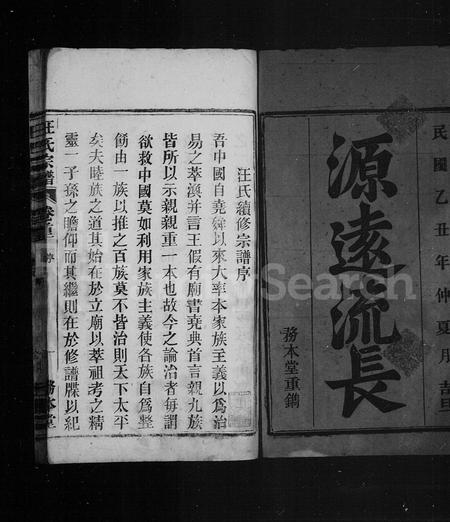 民國乙丑年仲夏月
源遠流長
務本堂重鐫
汪氏續修宗譜序
吾中國自堯舜以來大率本家族主義以爲治
易之萃渙并言王假有廟書堯典首言親九族
皆所以示親親重一本也故今之論治者每謂
欲救中國莫如利用家族主義使各族自爲整
飭由一族以推之百族莫不皆治則天下太平
矣夫睦族之道其始在於立廟以萃祖考之精
靈一子孫之瞻仰而其繼則在於修譜牒以紀
汪氏宗譜
務本堂
Search